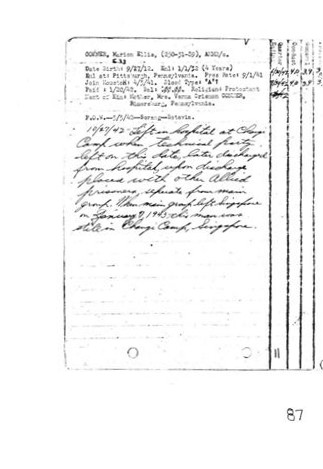 Marion Ellis, (250-31-09), AMM2/c.
Date Birth: 9/27/12. Enl: 1/1/32 (4 Years)
Enl at: Pittsburgh, Pennsylvania. Pres Rate: 9/1/41
Join Houston: 4/3/41. Blood Type: "A"
Paid : 1/20/42. Rel: Religion: Protestant
Next of Kin: Mother, Mrs. Verna
Pennsylvania.
P.O.W.--3/5/42--Serang--Batavia.
10/27/42 Left in hospital at Changi
Camp when technical party
left on this date, later discharged
from hospital, upon discharge
placed with other Allied
prisoners, separate from main
group. When main group left Singapore
on January 9, 1943 this man was
still in Changi Camp, Singapore.
87